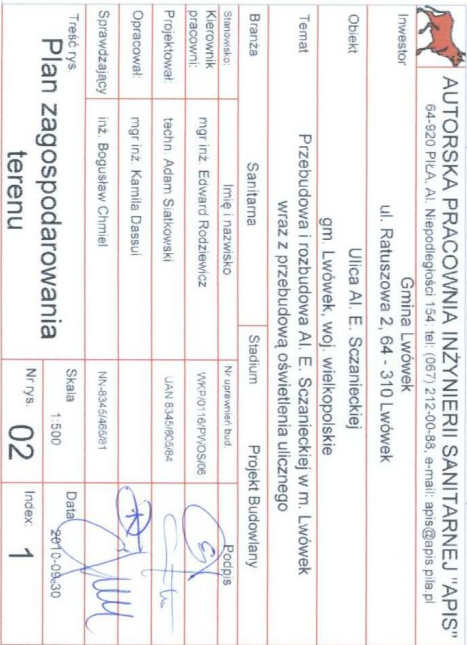 AUTORSKA PRACOWNIA INŻYNIERII SANITARNEJ "APIS"
64-920 PIŁA, Al. Niepodległości 154, tel: (067) 212-00-88, e-mail: apis@apis.pila.pl
Inwestor
Gmina Lwówek
ul. Ratuszowa 2, 64 - 310 Lwówek
Obiekt
Ulica Al. E. Sczanieckiej
gm. Lwówek, woj. wielkopolskie
Temat
Przebudowa i rozbudowa Al. E. Sczanieckiej w m. Lwówek
wraz z przebudową oświetlenia ulicznego
Branża
Sanitarna
Stadium
Projekt Budowlany
Stanowisko:
Imię i nazwisko
Nr uprawnień bud.
Podpis
Kierownik
pracowni:
mgr inż. Edward Rodziewicz
WKP/0116/PWOS/06
Projektował:
techn. Adam Siatkowski
UAN 8345/805/84
Opracował:
mgr inż. Kamila Dassui
Sprawdzający
inż. Bogusław Chmiel
NN-8345/465/81
Treść rys.
Plan zagospodarowania
terenu
Skala
1:500
Data
2010-09-30
Nr rys.
02
Index:
1